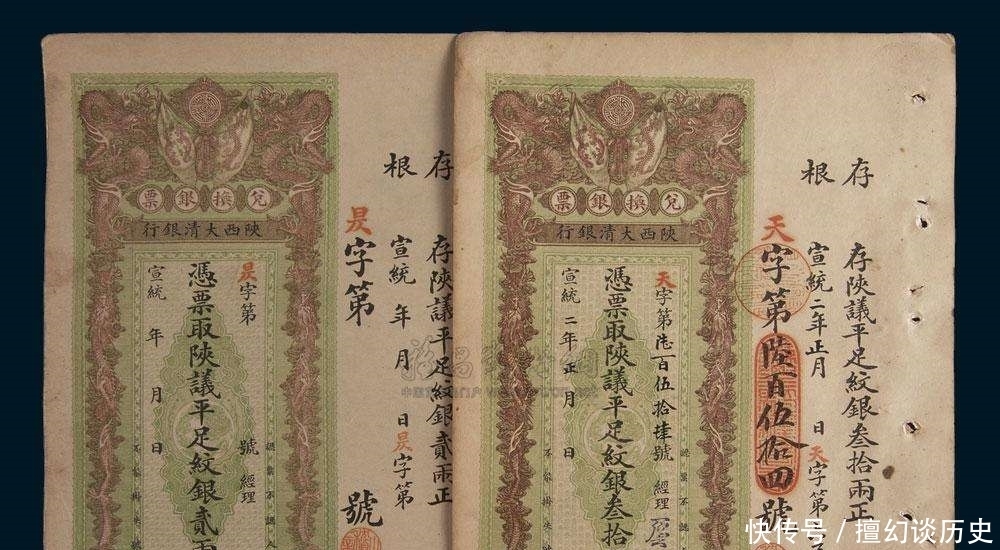 存根
存陝議平足紋銀貳兩正
宣統 年 月 日 昃字第
昃字第 號
兌換銀票
陝西大清銀行
昃字第 號 經理
憑票取陝議平足紋銀貳兩
宣統 年 月 日
存根
存陝議平足紋銀叁拾兩正
宣統二年正月 日 天字第
天字第陸百伍拾四號
兌換銀票
陝西大清銀行
天字第陸百伍拾肆號 經理
憑票取陝議平足紋銀叁拾
宣統二年正月 日
快传号 / 擅幻谈历史